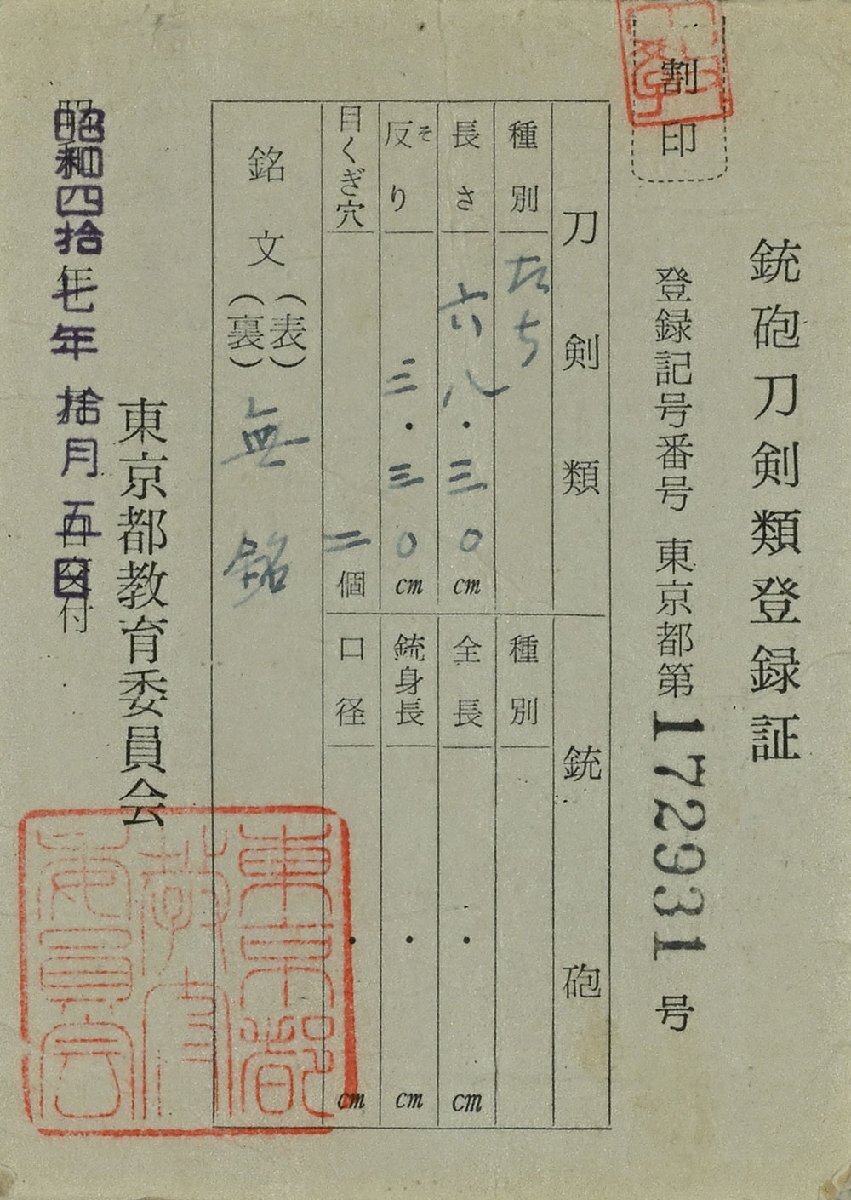 銃砲刀剣類登録証
割印
登録記号番号 東京都第172931号
刀剣類
種別 たち
長さ 六八・三〇cm
反り そ 三・三〇cm
目くぎ穴 二個
銘文（表）（裏） 無銘
銃砲
種別
全長 ・ cm
銃身長 ・ cm
口径 ・ cm
東京都教育委員会
昭和四拾七年拾月五日交付
東京都教育委員会